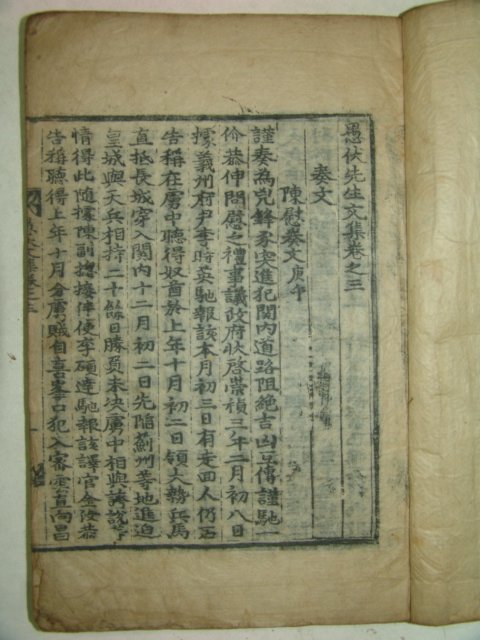 愚伏先生文集卷之三
奏文
陳慰奏文庚午
謹奏爲兇鋒豕突進犯關內道路阻絶吉凶互傳謹馳一
价恭伸問慰之禮事議政府狀啓崇禎三年二月初八日
據義州府尹李時英馳報該本月初三日有走回人仍
告稱在虜中聽得奴酋於上年十月初二日領大勢兵馬
直抵長城穿入關內十二月初二日先陷薊州等地進迫
皇城與天兵相持二十餘日勝負未決虜中相與誇說等
情得此隨據陳副摠接伴使李碩達馳報該譯官金汝恭
告稱聽得上年十月分虜賊自喜峯口犯入審量直向昌